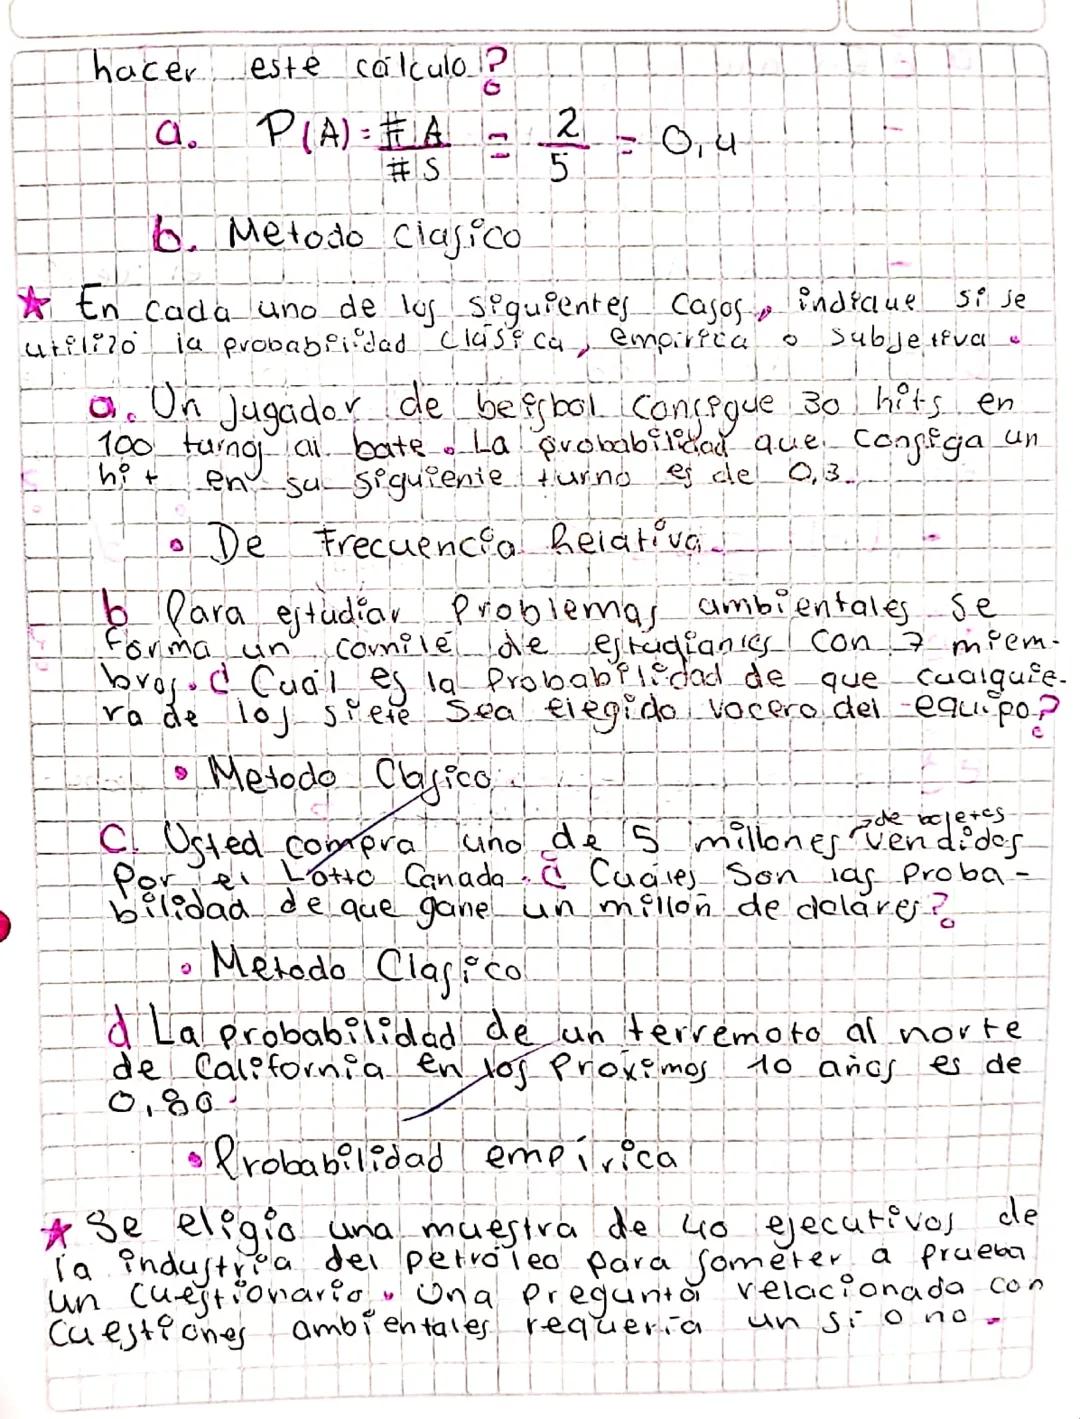 hacer este cálculo?
a. P(A) = #A / #S = 2/5 = 0,4
b. Metodo Clasico
★ En cada uno de los siguientes casos, indique si se
utilizó la probabilidad clásica, empirica o subjetiva.
a. Un jugador de beisbol consigue 30 hits en
100 turnos al bate. La probabilidad que consiga un
hit en su siguiente turno es de 0,3.
• De Frecuencia Relativa.
b Para estudiar Problemas ambientales se
forma un comité de estudiantes con 7 miem-
bros. ¿Cuál es la Probabilidad de que cualquie-
ra de los siete sea elegido vocero del equipo?
• Metodo Clasico.
de boletes
C. Usted compra uno de 5 millones vendidos
por el Lotto Canada. ¿Cuales son las proba-
bilidad de que gane un millón de dolares?
• Metodo Clasico
d La probabilidad de un terremoto al norte
de California en los Proximos 10 años es de
0,80.
• Probabilidad empírica
★ Se eligio una muestra de 40 ejecutivos de
la industria del petróleo para someter a prueba
un cuestionario. Una Pregunta relacionada con
cuestiones ambientales requeria un si o no.